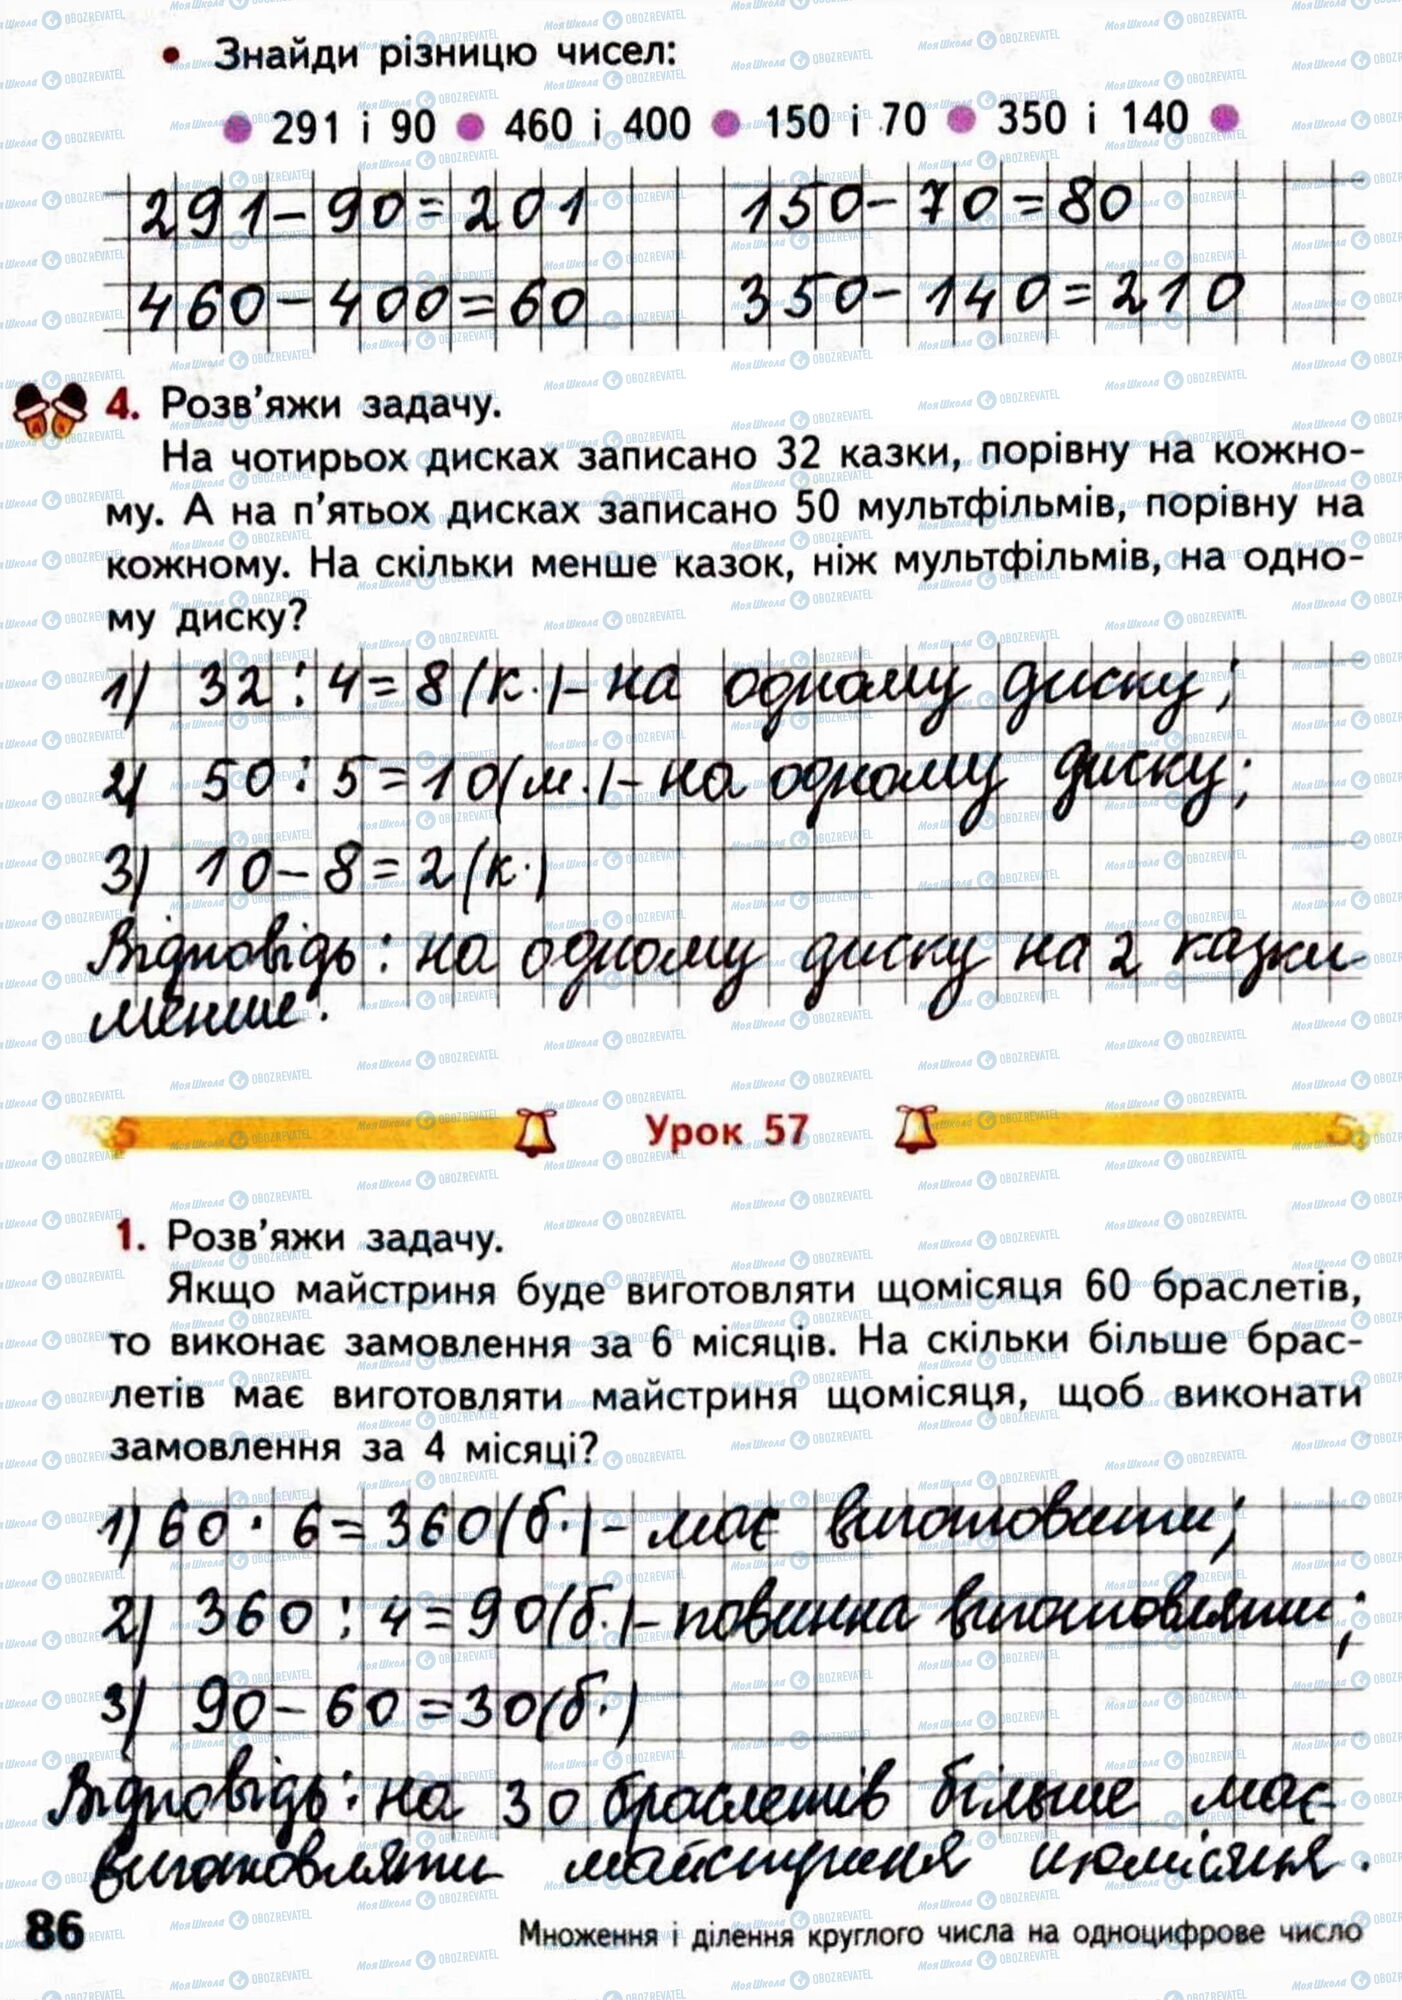 • Знайди різницю чисел:
291 і 90 460 і 400 150 і 70 350 і 140
291-90=201 150-70=80
460-400=60 350-140=210
4. Розв'яжи задачу.
На чотирьох дисках записано 32 казки, порівну на кожно-
му. А на п'ятьох дисках записано 50 мультфільмів, порівну на
кожному. На скільки менше казок, ніж мультфільмів, на одно-
му диску?
1) 32:4=8(к.)-на одному диску;
2) 50:5=10(м.)-на одному диску;
3) 10-8=2(к.)
Відповідь: на одному диску на 2 казки
менше.
Урок 57
1. Розв'яжи задачу.
Якщо майстриня буде виготовляти щомісяця 60 браслетів,
то виконає замовлення за 6 місяців. На скільки більше брас-
летів має виготовляти майстриня щомісяця, щоб виконати
замовлення за 4 місяці?
1) 60·6=360(б.)-має виготовити;
2) 360:4=90(б.)-повинна виготовляти;
3) 90-60=30(б.)
Відповідь: на 30 браслетів більше має
виготовляти майстриня щомісяця.
86
Множення і ділення круглого числа на одноцифрове число
МояШкола OBOZREVATEL